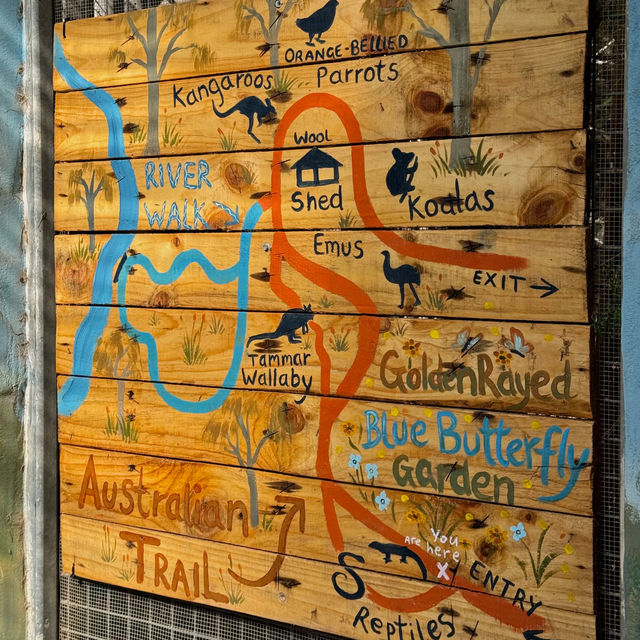 ORANGE-BELLIED
Parrots
Kangaroos
Wool
Shed
RIVER
WALK
Koalas
Emus
EXIT →
Tammar
Wallaby
Golden Rayed
Blue Butterfly
Garden
Australian
TRAIL
You
are here
X
ENTRY
Reptiles